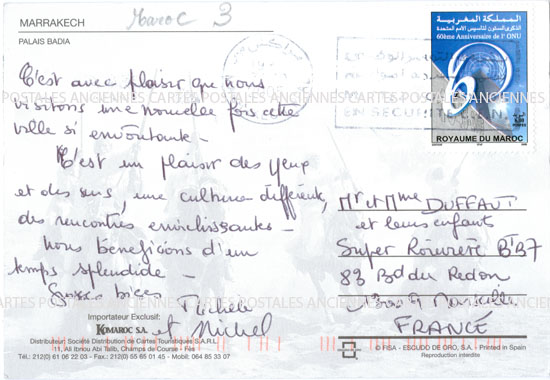 MARRAKECH
PALAIS BADIA
Maroc 3
C'est avec plaisir que nous
visitons une nouvelle fois cette
ville si envoutante -
C'est un plaisir des yeux
et des sens, une culture différente,
des rencontres enrichissantes -
Nous bénéficions d'un
temps splendide -
Gros bises
Michèle
et Michel
POSTALES ANCIENNES CARTES POSTALES ANCIENNES CARTES POSTALES ANCIENNES
CARTES POSTALES ANCIENNES CARTES POSTALES ANCIENNES CARTES POSTALES
Importateur Exclusif:
KOMAROC S.A.
Distributeur Société Distributeur de Cartes Touristiques S.A.R.L
11, Ali Ibnou Abi Talib, Champs de Course - Fès
Tél.: 212(0) 61 06 22 03 - Fax: 212(0) 55 65 01 45 - Mobil: 064 85 33 07
المملكة المغربية
الذكرى الستون لتأسيس الأمم المتحدة
60ème Anniversaire de l' ONU
ROYAUME DU MAROC
EN SECURITE
Mr et Mme DUFFAUT
et leurs enfants
Super Rouvière Bt B7
83 Bd du Redon
Marseille
FRANCE
© FISA - ESCUDO DE ORO, S.A. - Printed in Spain
Reproduction interdite